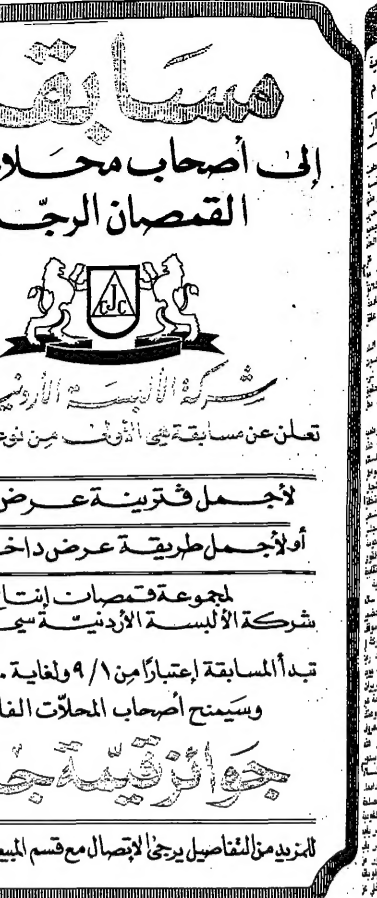 مسابقـ
إلى أصحاب محـلا
القمصان الرجـ
CJC
شركة الألبسة الأردنيـ
تعلن عن مسابقة هي الأولى من نوعـ
لأجمل ڤترينة عرض
أو لأجمل طريقة عرض داخـ
لمجموعة قمصان إنتاج
شركة الألبسة الأردنيّة
تبدأ المسابقة إعتبارًا من ٩/١ ولغاية
وسيمنح أصحاب المحلاّت الفا
جوائز قيّمة جـ
للمزيد من التفاصيل يرجى الإتصال مع قسم المبيعـ